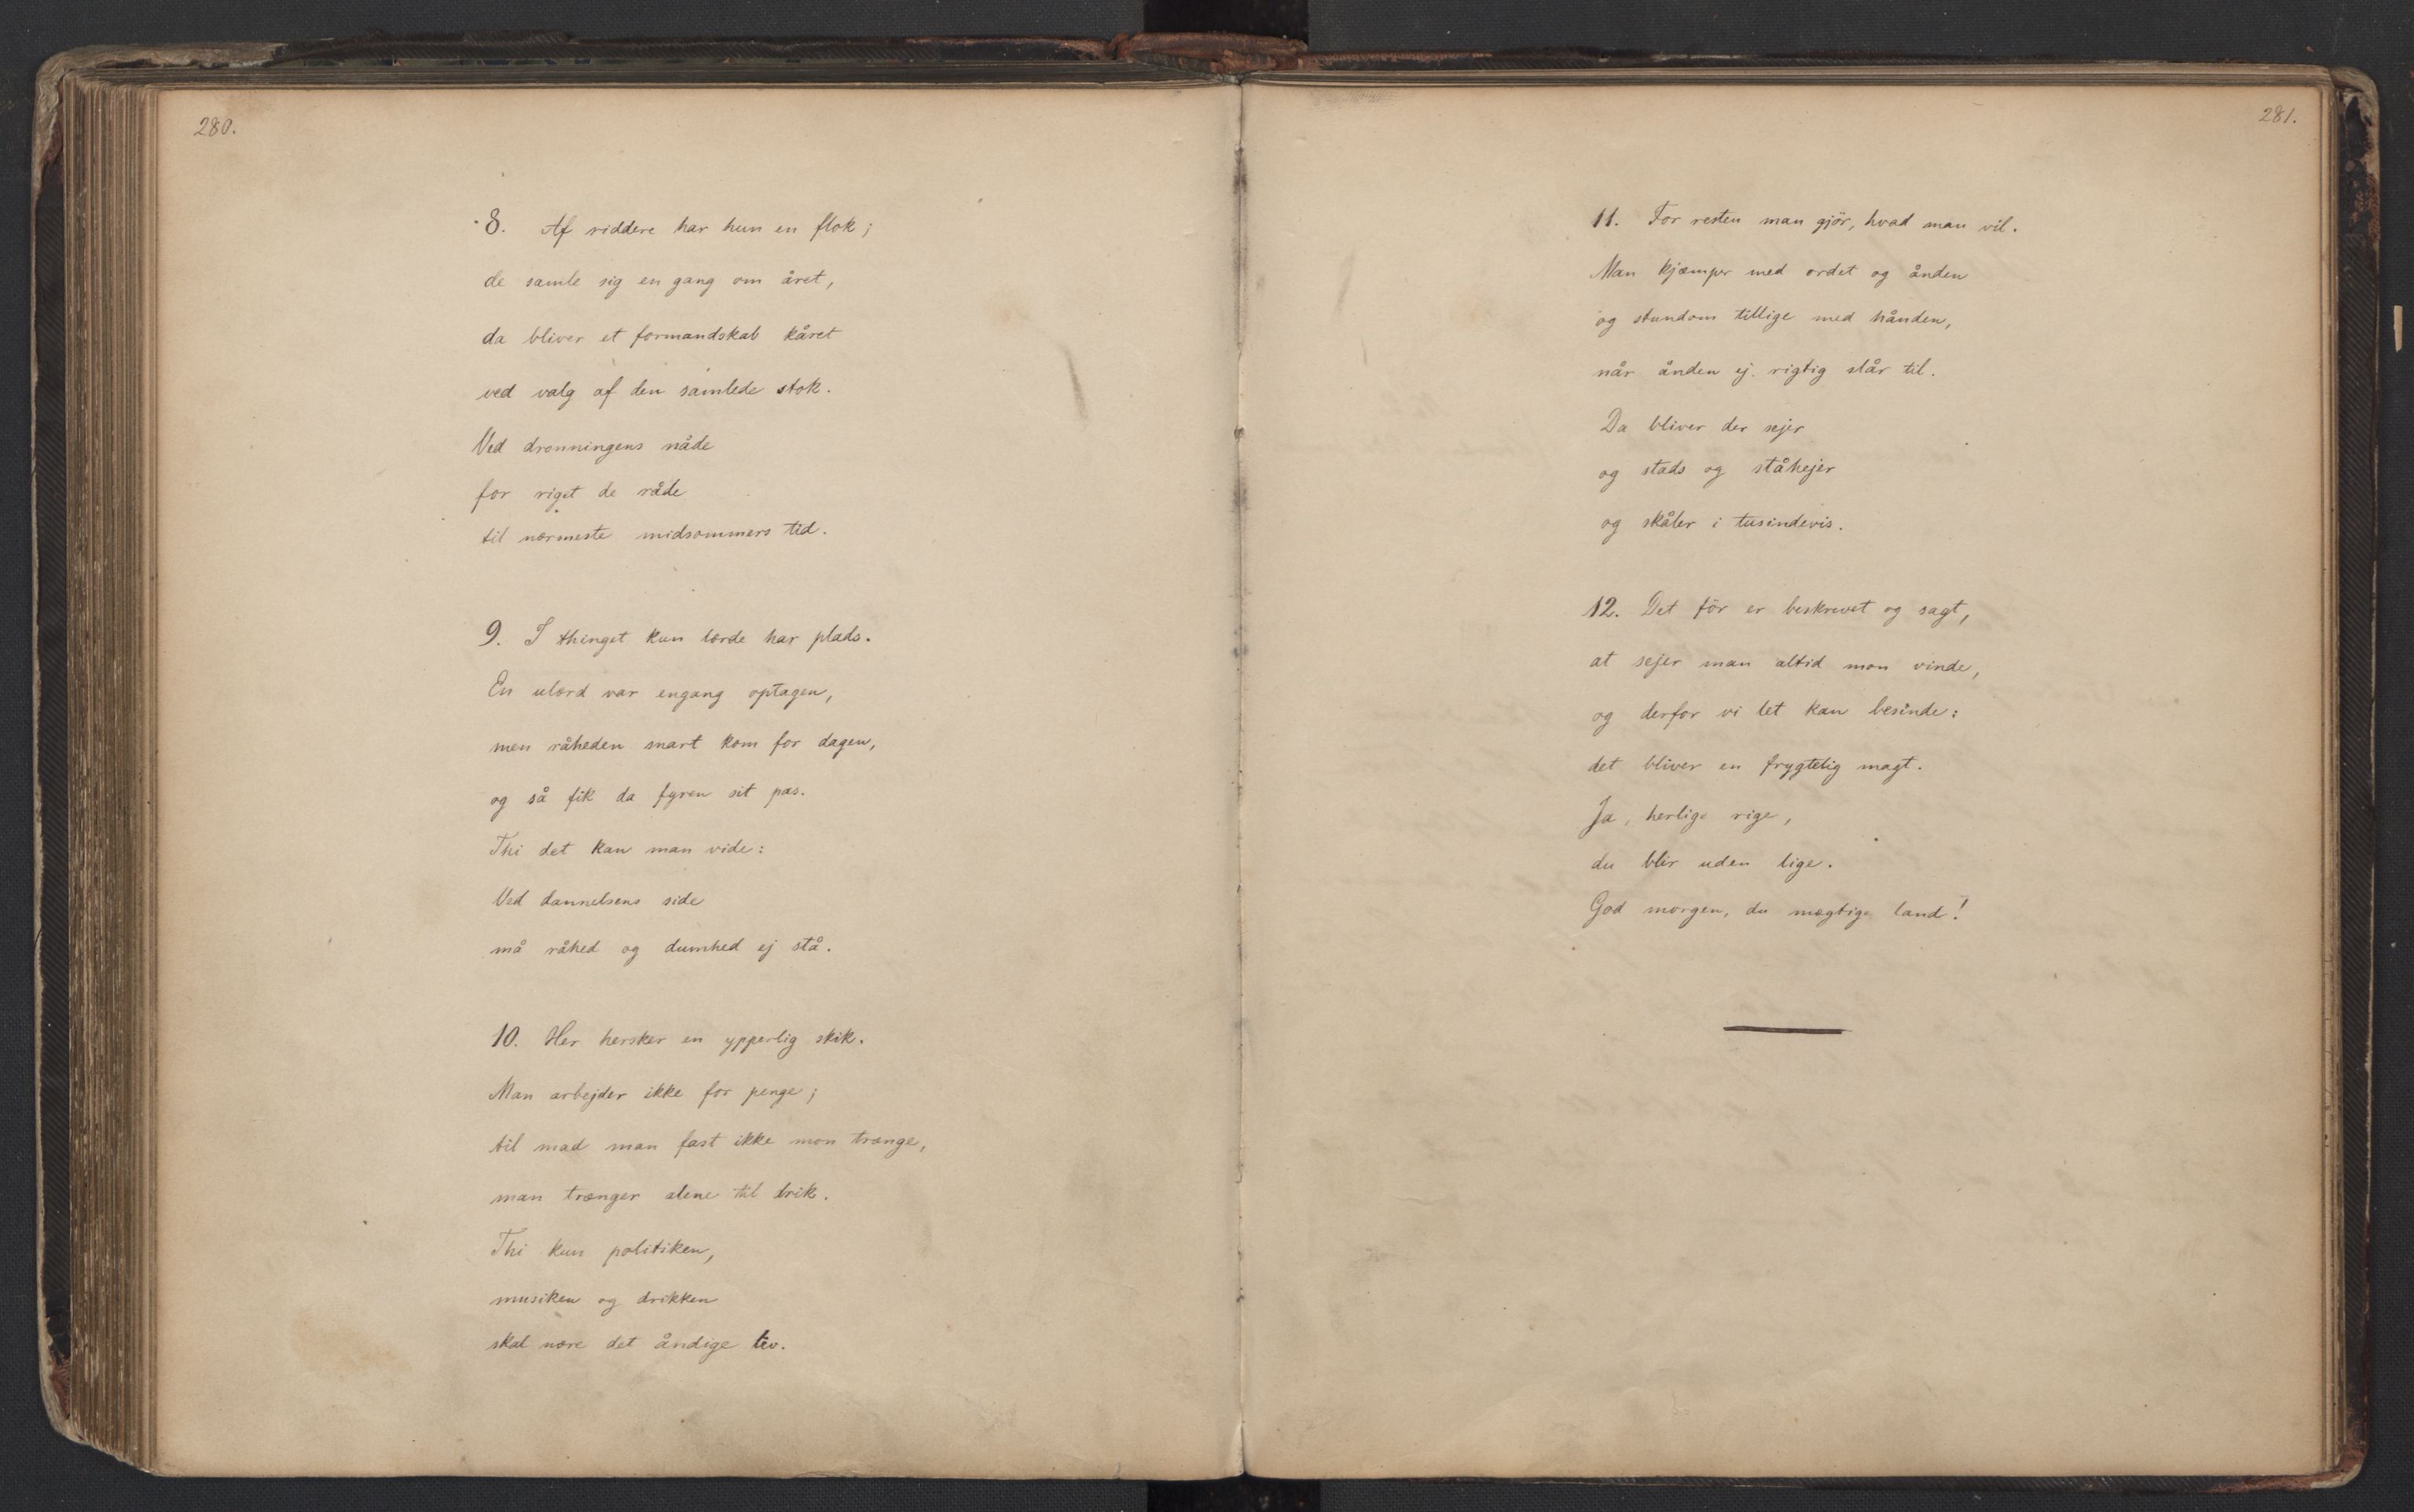 280.
8. Af riddere har hun en flok;
de samle sig en gang om året,
da bliver et formandskab kåret
ved valg af den samlede stok.
Ved dronningens nåde
for riget de råde
til nærmeste midsommers tid.
9. I thinget kun lærde har plads.
En ulærd var engang optagen,
men råheden snart kom for dagen,
og så fik da fyren sit pas.
Thi det kan man vide:
Ved dannelsens side
må råhed og dumhed ej stå.
10. Her hersker en ypperlig skik.
Man arbejder ikke for penge;
til mad man fast ikke mon trænge,
man trænger alene til drik.
Thi kun politiken,
musiken og drikken
skal nære det åndige liv.
281.
11. For resten man gjör, hvad man vil.
Man kjæmper med ordet og ånden
og stundom tillige med hånden,
når ånden ej rigtig slår til.
Da bliver der sejer
og stads og ståhejer
og skåler i tusindevis.
12. Det för er beskrevet og sagt,
at sejer man altid mon vinde,
og derfor vi let kan besinde:
det bliver en frygtelig magt.
Ja, herlige rige,
du blir uden lige.
God morgen, du mægtige land!